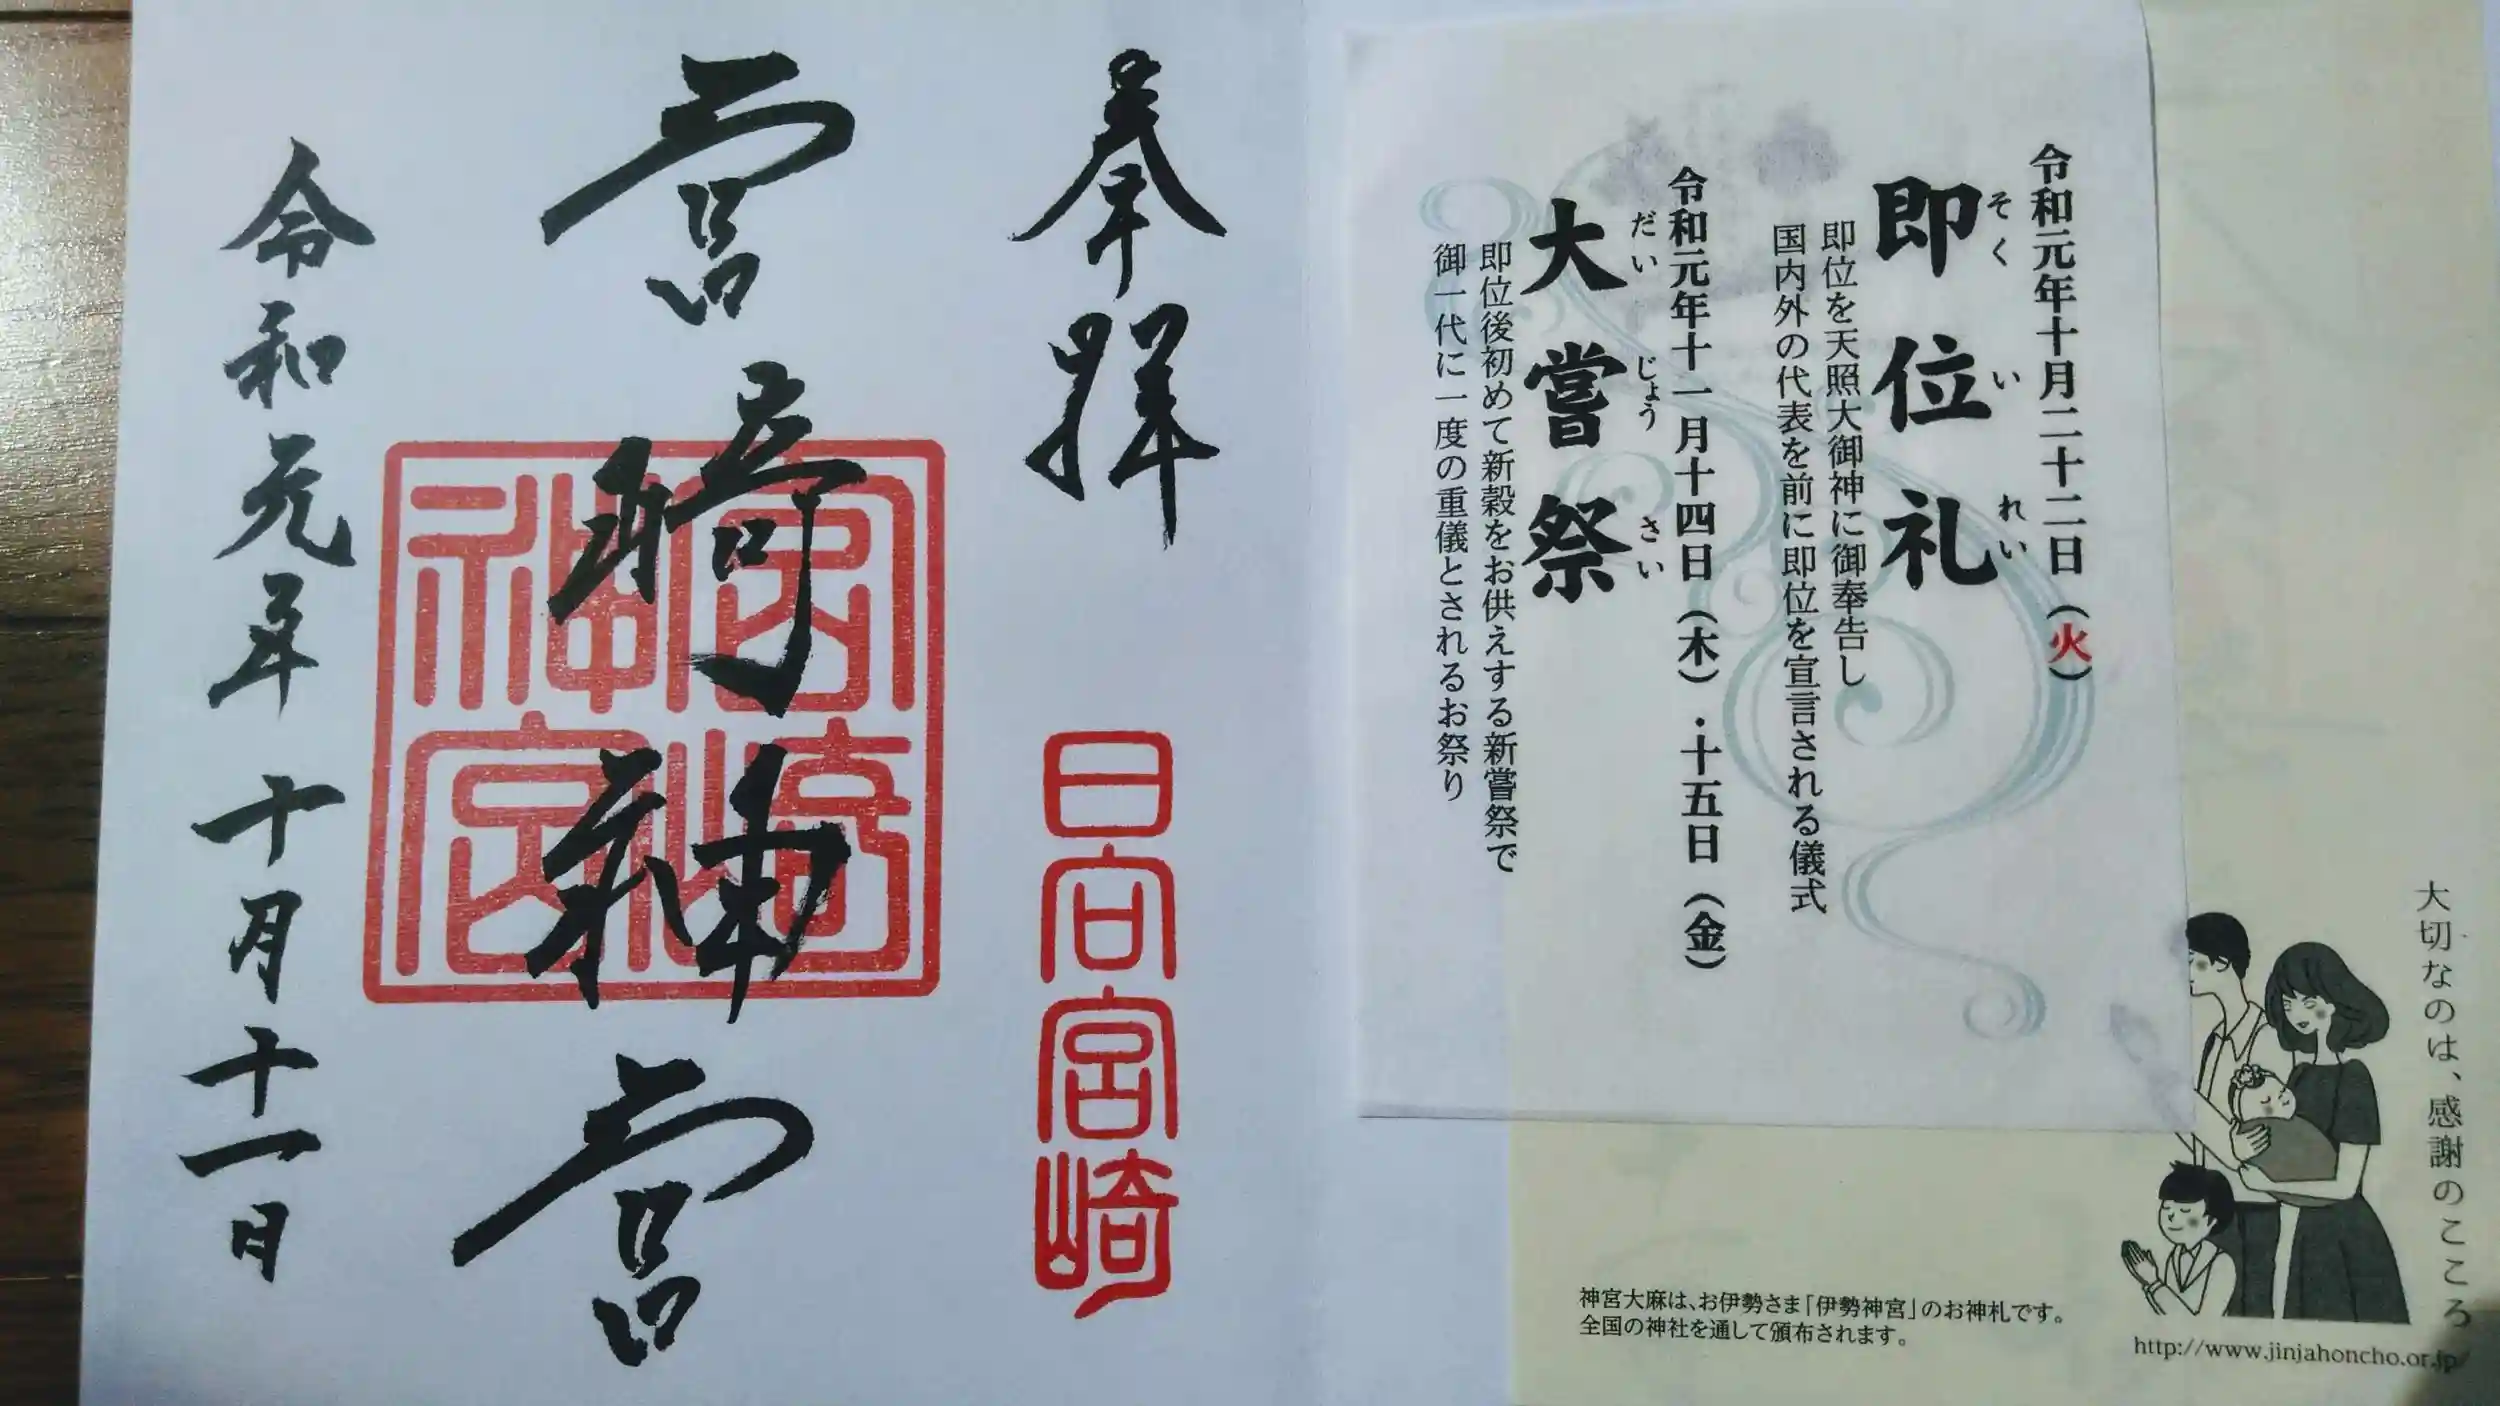 令和元年十月二十二日（火）
即位礼
そくいれい
即位を天照大御神に御奉告し
国内外の代表を前に即位を宣言される儀式
令和元年十一月十四日（木）・十五日（金）
大嘗祭
だいじょうさい
即位後初めて新穀をお供えする新嘗祭で
御一代に一度の重儀とされるお祭り
大切なのは、感謝のこころ
神宮大麻は、お伊勢さま「伊勢神宮」のお神札です。
全国の神社を通して頒布されます。
http://www.jinjahoncho.or.jp/
奉拝
日向宮崎
宮崎神宮
宮崎神宮
令和元年十月十一日